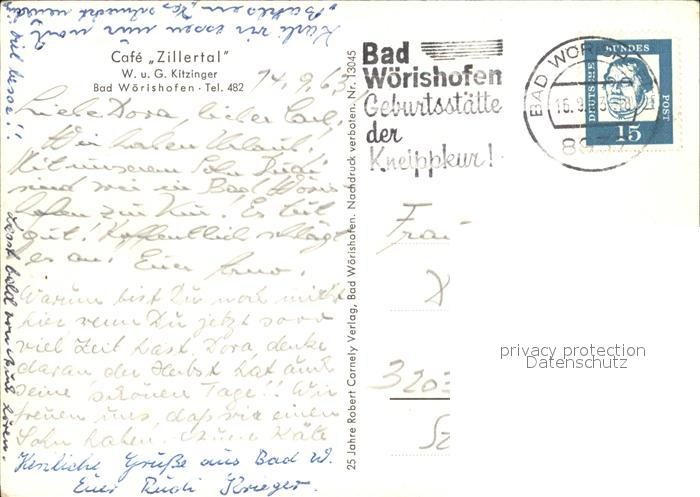 Café „Zillertal"
W. u. G. Kitzinger
Bad Wörishofen · Tel. 482
14.9.63
Liebe Dora, lieber
Wir haben Urlaub!
Mit unserem Sohn Rudi
sind wir in Bad Wöris
hofen zur Kur! Es tut
gut! Hoffentlich schlägt
es an! Euer
Warum bist Du noch nicht
hier, wenn Du jetzt
viel Zeit hast. Dora, denke
daran der Herbst hat auch
seine schönen Tage!! Wir
freuen uns, daß wir einen
Sohn haben.
Herzliche Grüße aus Bad W.
Euer Rudi Krieger.
viel besser!!
Lasst bald von Euch hören.
wir essen nur noch
25 Jahre Robert Cornely Verlag, Bad Wörishofen. Nachdruck verboten. Nr. 13045
Bad
Wörishofen
Geburtsstätte
der
Kneippkur!
BAD WÖRIS
DEUTSCHE
BUNDES
POST
15
Frau
privacy protection
Datenschutz